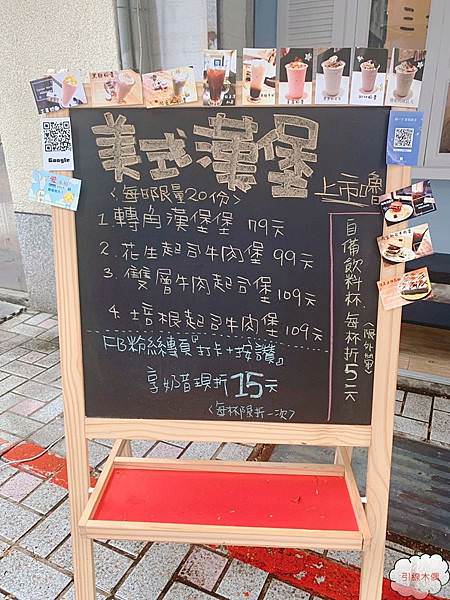 美式漢堡
上市嚕
〈每日限量20份〉
1. 轉角漢堡堡 79元
2. 花生起司牛肉堡 99元
3. 雙層牛肉起司堡 109元
4. 培根起司牛肉堡 109元
FB粉絲專頁『打卡+按讚』
享奶昔現折15元
〈每杯限折一次〉
自備飲料杯每杯折5元
〈限外帶〉
Google
引線木偶